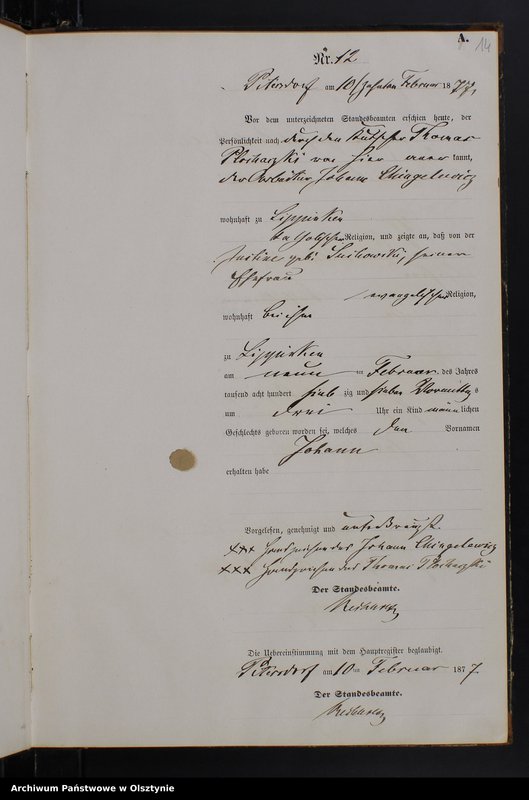 A.
14
Nr. 12
Petersdorf am 10 / zehnten Februar 1877.
Vor dem unterzeichneten Standesbeamten erschien heute, der
Persönlichkeit nach durch den Kutscher Thomas
von hier anerkannt,
der Arbeiter Johann
wohnhaft zu Lippinken
katholischer Religion, und zeigte an, daß von der
Justine geb. seiner
Ehefrau
evangelischer Religion,
wohnhaft bei ihm
zu Lippinken
am neun ten Februar des Jahres
tausend acht hundert sieb zig und sieben Vormittags
um drei Uhr ein Kind männlichen
Geschlechts geboren worden sei, welches den Vornamen
Johann
erhalten habe
Vorgelesen, genehmigt und unterkreuzt.
+++ Handzeichen des Johann
+++ Handzeichen des Thomas
Der Standesbeamte.
Die Uebereinstimmung mit dem Hauptregister beglaubigt.
Petersdorf am 10ten Februar 1877.
Der Standesbeamte.
Archiwum Państwowe w Olsztynie